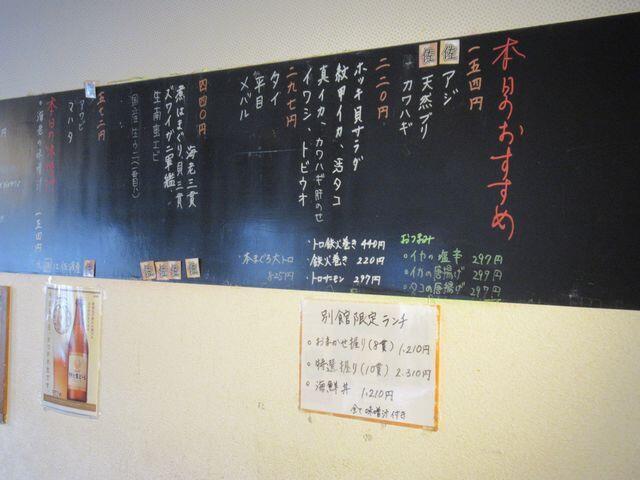 本日のおすすめ
一五四円
佐
アジ
佐
天然ブリ
カワハギ
二二〇円
ホッキ貝サラダ
紋甲イカ、活タコ
真イカ、カワハギ肝のせ
イワシ、トビウオ
二九七円
タイ
平目
メバル
四四〇円
海老三貫
煮はまぐり貝三貫
ズワイガニ軍艦
生南蛮エビ
国産生ウニ(一貫)
五七二円
アワビ
マハタ
本日の味噌汁
海老の味噌汁
一五四円
おつまみ
○イカの塩辛 297円
○イカの唐揚げ 297円
○タコの唐揚げ 297円
・トロ鉄火巻き 440円
・鉄火巻き 220円
・トロサーモン 297円
・本まぐろ大トロ
825円
佐
佐
佐
佐
別館限定ランチ
○おまかせ握り(8貫) 1,210円
○特選握り(10貫) 2,310円
○海鮮丼 1,210円
全て味噌汁付き